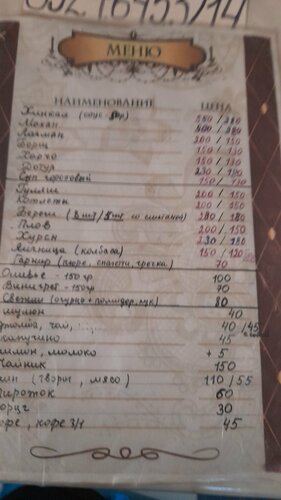 МЕНЮ
НАИМЕНОВАНИЕ ЦЕНА
Хинкал (соус) 350 / 280
Мохан 400 / 280
Лагман 200 / 150
Борщ 150 / 130
Харчо 150 / 130
230 / 180
Суп гороховый 150 / 130
Гуляш 200 / 150
Котлеты 200 / 150
(8 шт / 5 шт со сметаной) 280 / 180
Плов 200 / 150
Курзе 230 / 180
Яичница (колбаса) 150 / 120
Гарнир (пюре, спагетти, гречка) 70
Оливье - 150 гр 100
Винегрет - 150 гр 70
Свежий (огурцы + помидор, лук) 80
40
чай, 40 / 45
капучино 45
лимон, молоко + 5
Чайник 150
(творог, мясо) 110 / 55
Пирожок 60
30
кофе, кофе 3/1 45